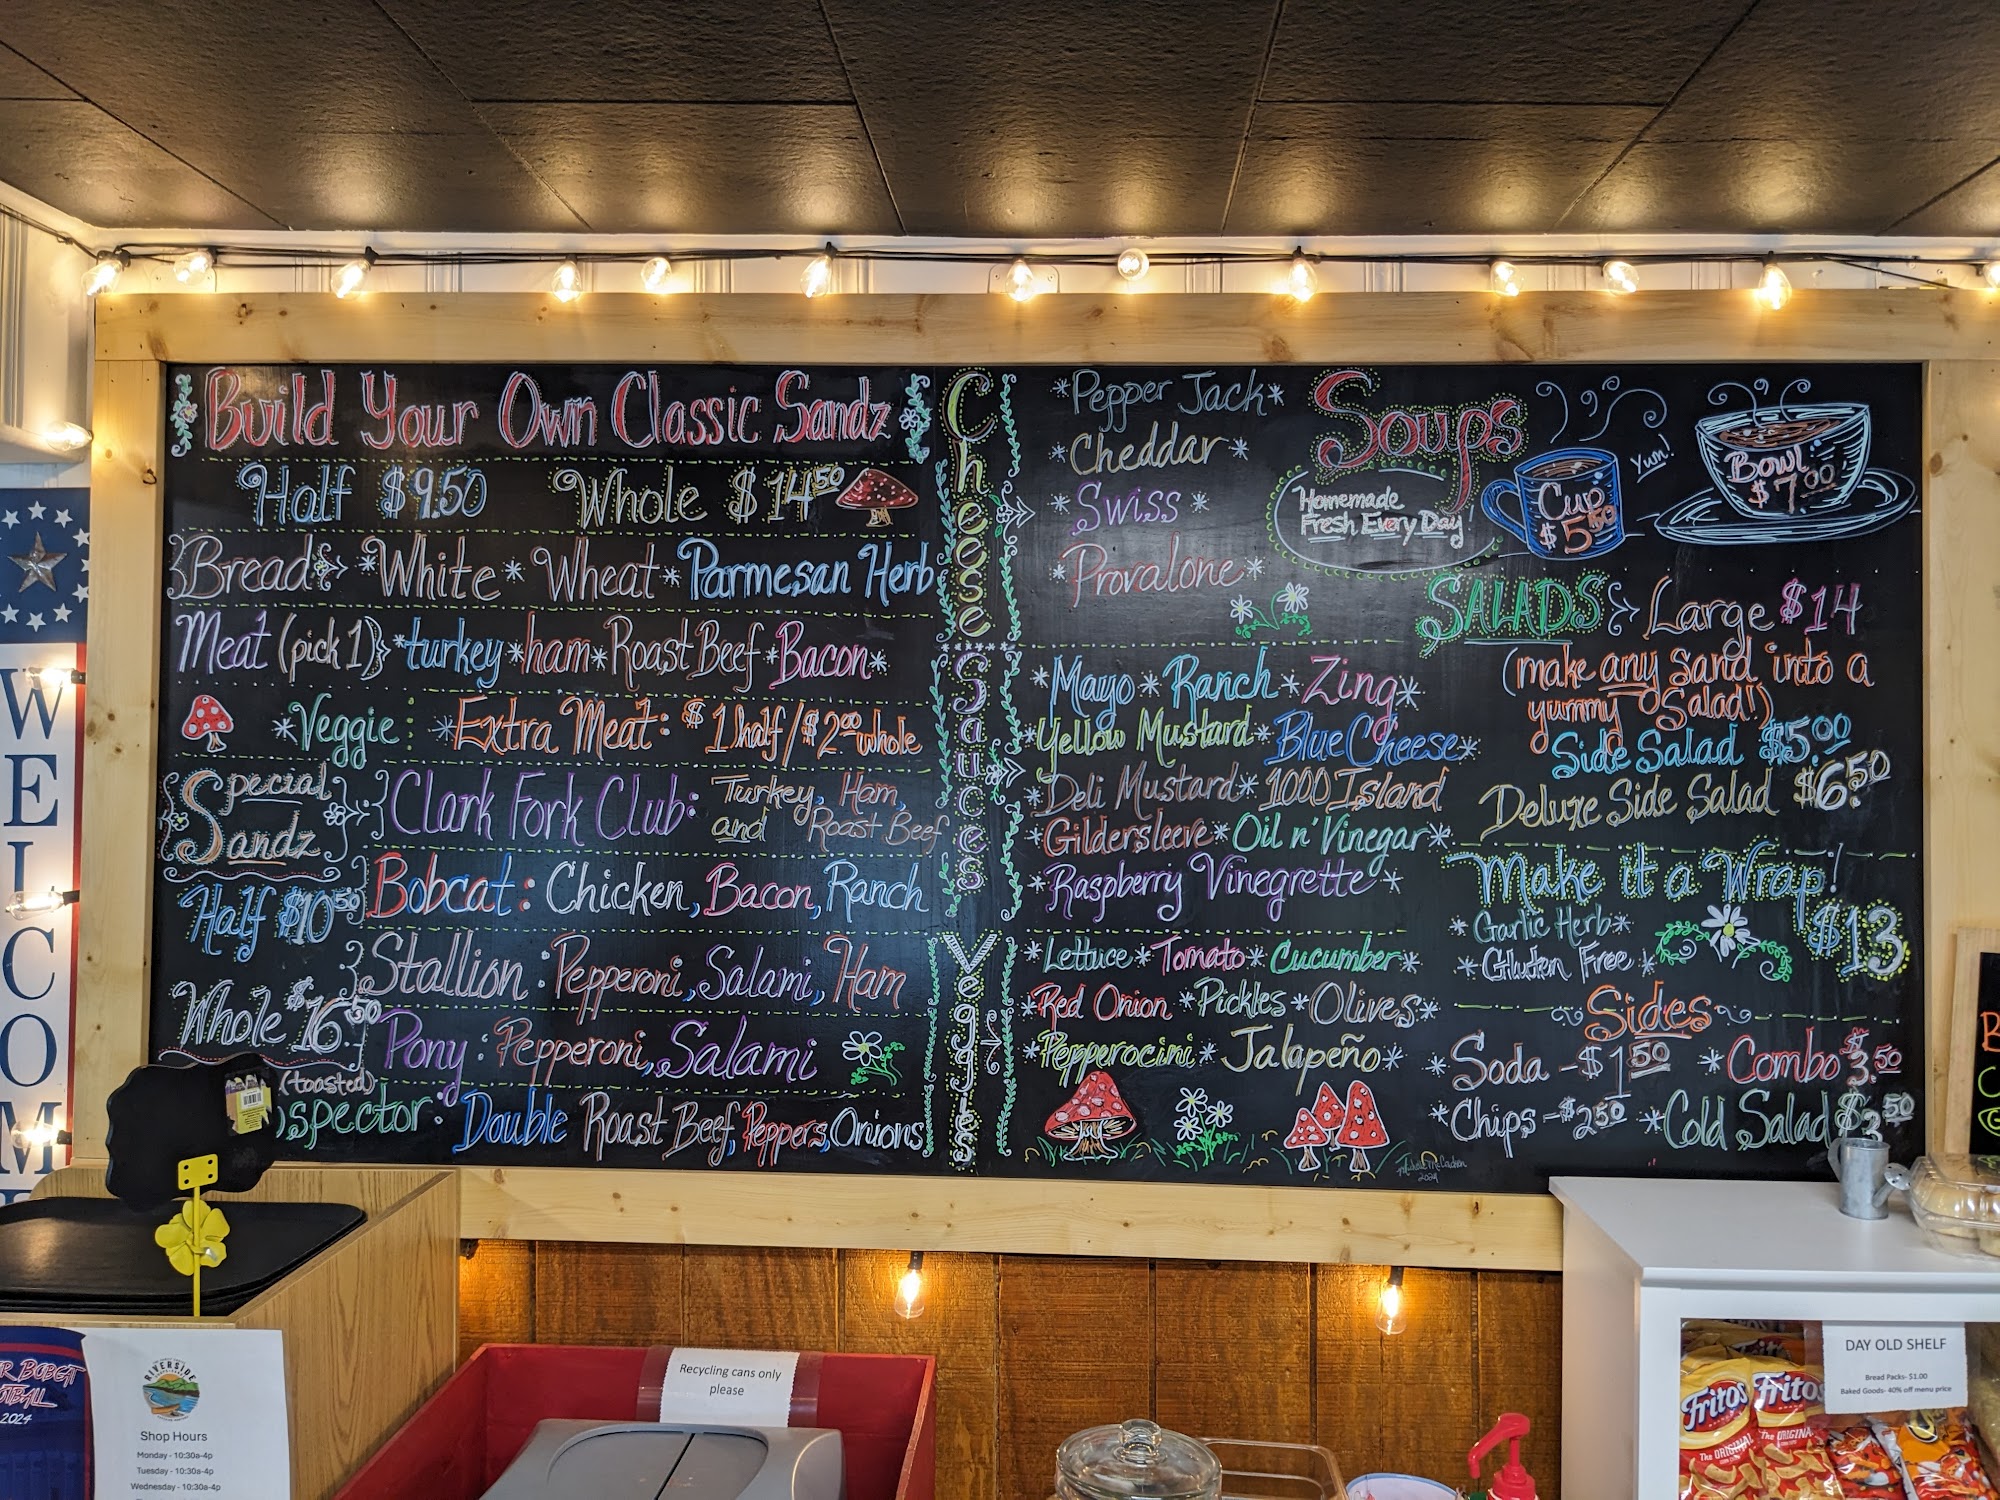 Build Your Own Classic Sandz
Half $9.50 Whole $14.50
Bread *White* Wheat* Parmesan Herb
Meat (pick 1) *turkey*ham*Roast Beef*Bacon*
*Veggie: *Extra Meat: $1 half/$2.00 whole
Special Sandz
Half $10.50
Whole $16.50
Clark Fork Club: Turkey, Ham,
and Roast Beef
Bobcat: Chicken, Bacon, Ranch
Stallion: Pepperoni, Salami, Ham
Pony: Pepperoni, Salami
(toasted)
spector: Double Roast Beef, Peppers, Onions
Cheese
*Pepper Jack*
*Cheddar*
*Swiss *
*Provalone*
Sauces
*Mayo*Ranch*Zing*
*Yellow Mustard*Blue Cheese*
*Deli Mustard*1000 Island
*Gildersleeve*Oil n' Vinegar*
*Raspberry Vinegrette*
Veggies
*Lettuce*Tomato*Cucumber*
*Red Onion*Pickles*Olives*
*Pepperocini*Jalapeño*
2024
Soups
Homemade
Fresh Every Day!
Cup
$5.50
Yum!
Bowl
$7.00
SALADS Large $14
(make any sand into a
yummy Salad!)
Side Salad $5.00
Deluxe Side Salad $6.50
Make it a Wrap!
$13
*Garlic Herb*
*Gluten Free*
Sides
*Soda - $1.50 *Combo $3.50
*Chips - $2.50 *Cold Salad $3.50
WELCOM
BOBCAT
2024
RIVERSIDE
Shop Hours
Monday - 10:30a-4p
Tuesday - 10:30a-4p
Wednesday - 10:30a-4p
Recycling cans only
please
DAY OLD SHELF
Bread Packs- $1.00
Baked Goods- 40% off menu price
Fritos
The ORIGINAL
Fritos
The ORIGINA